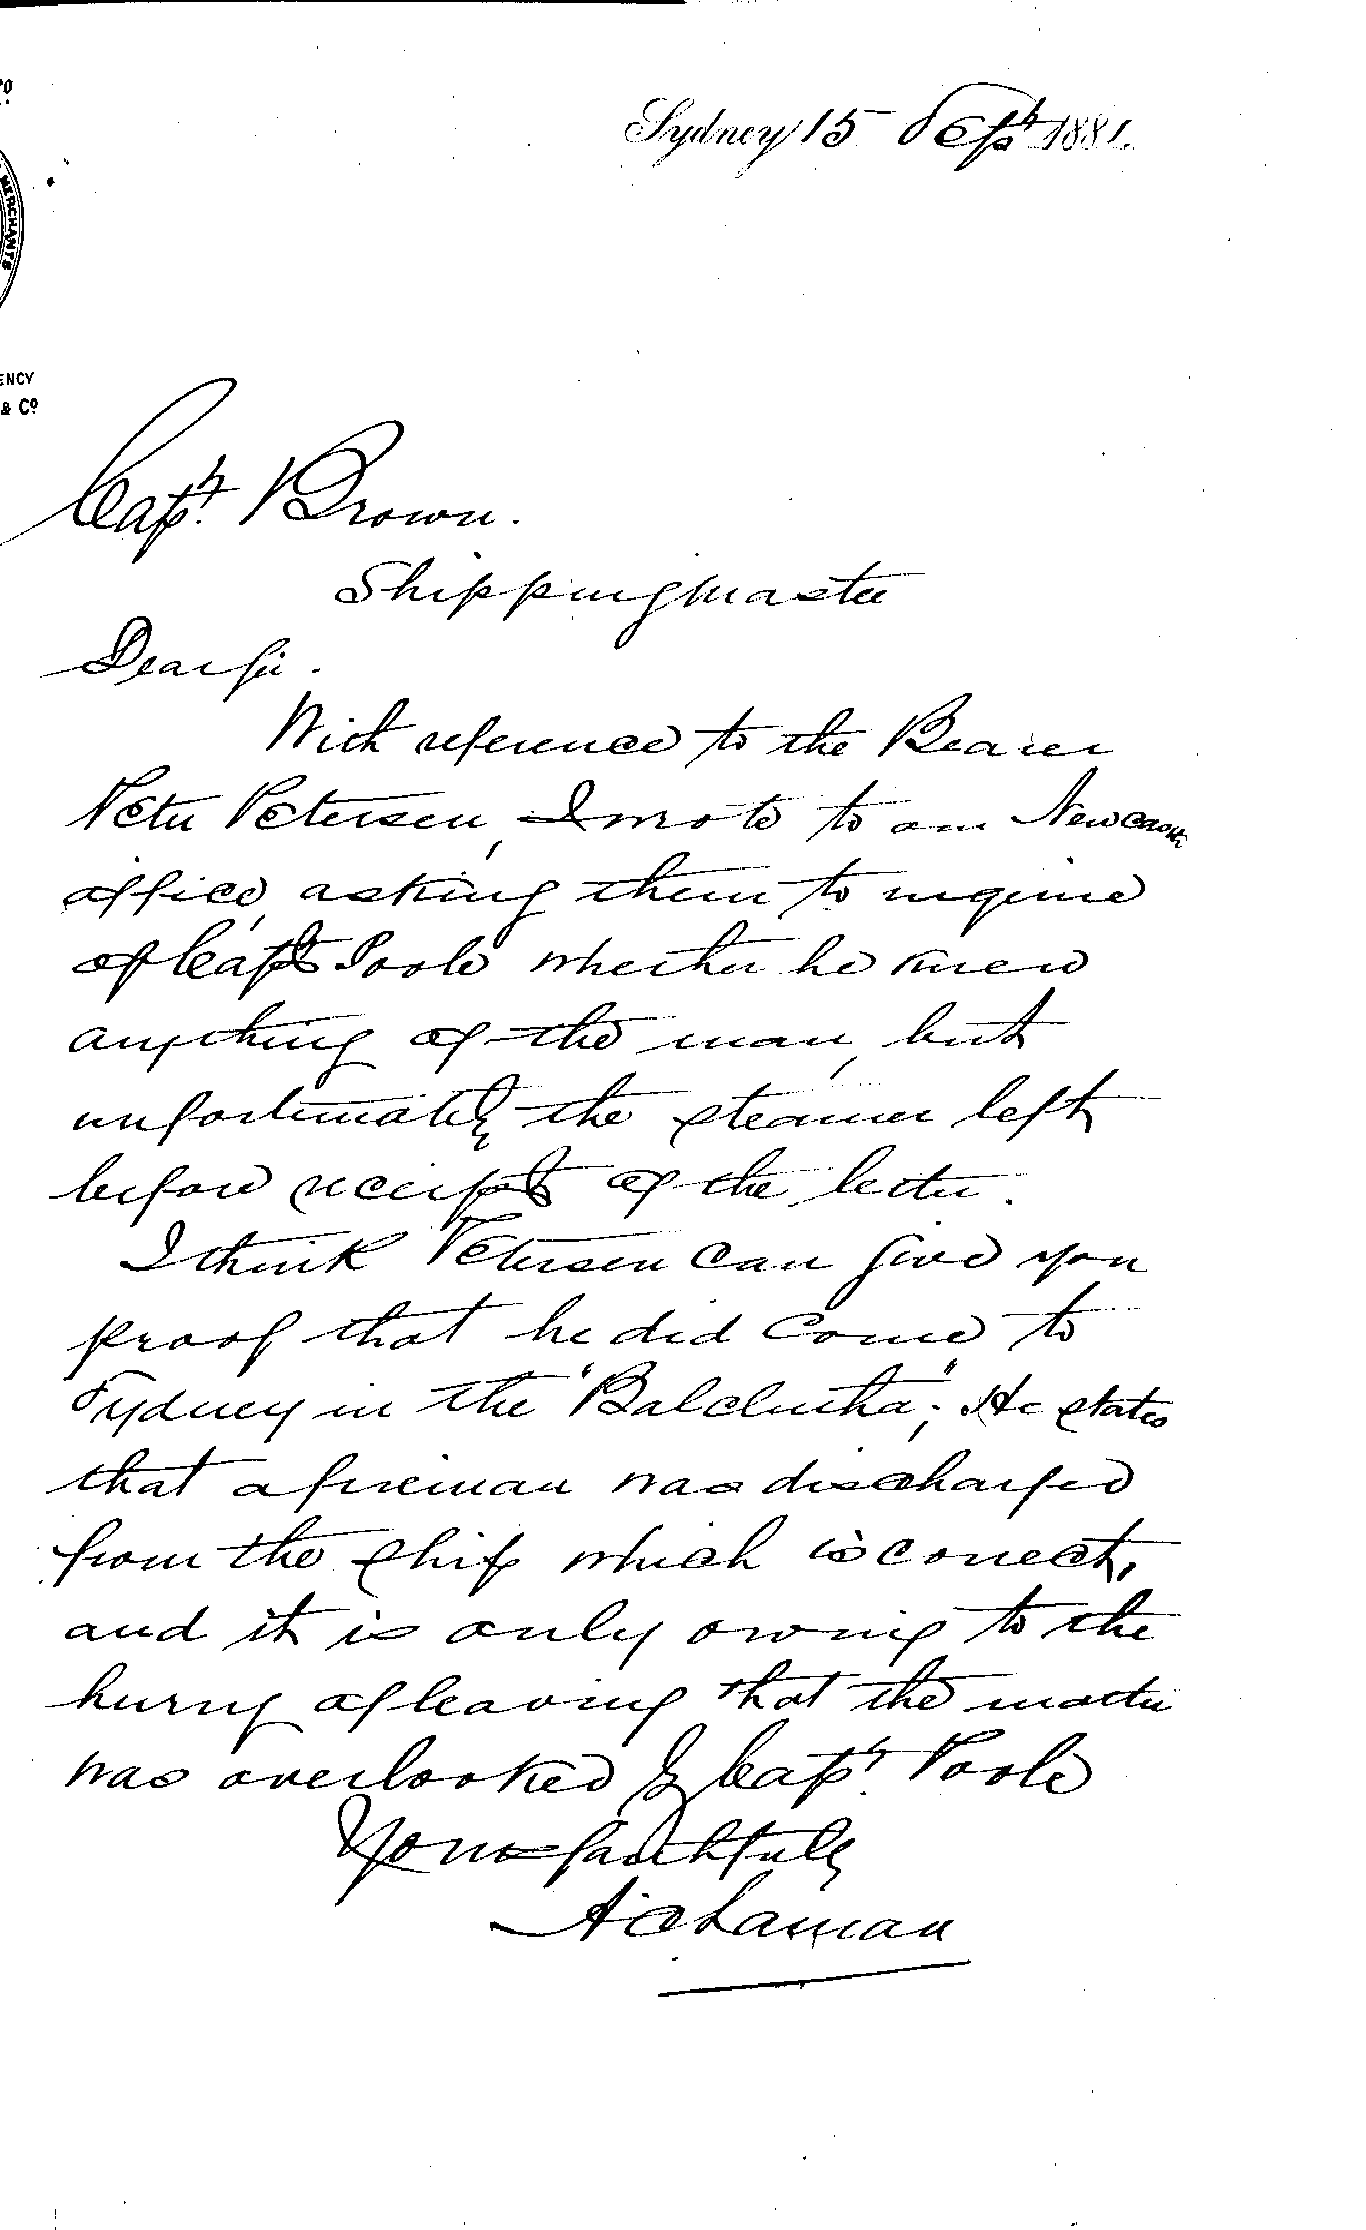 Sydney 15 Sept 1881.
MERCHANTS
ENCY
& Co
Capt. Brown.
Shipping Master
Dear Sir.
With reference to the Bearer
Peter Petersen, I wrote to our Newcastle
office, asking them to inquire
of Capt Poole whether he knew
anything of the man, but
unfortunately the steamer left
before receipt of the letter.
I think Petersen can give you
proof that he did come to
Sydney in the "Balclutha"; He states
that a fireman was discharged
from the ship which is correct,
and it is only owing to the
hurry of leaving that the matter
was overlooked by Capt. Poole
Yours faithfully